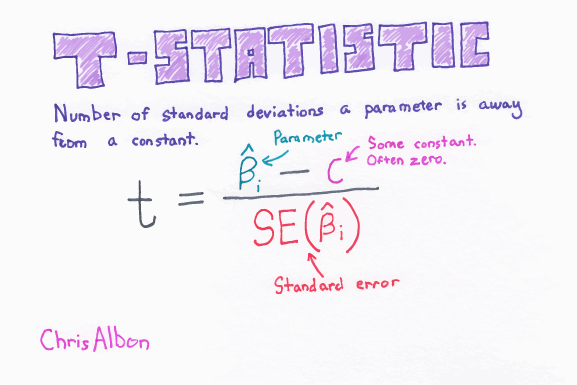 T-STATISTIC
Number of standard deviations a parameter is away
from a constant.
Parameter
Some constant.
Often zero.
t = (β̂ᵢ − C) / SE(β̂ᵢ)
Standard error
Chris Albon